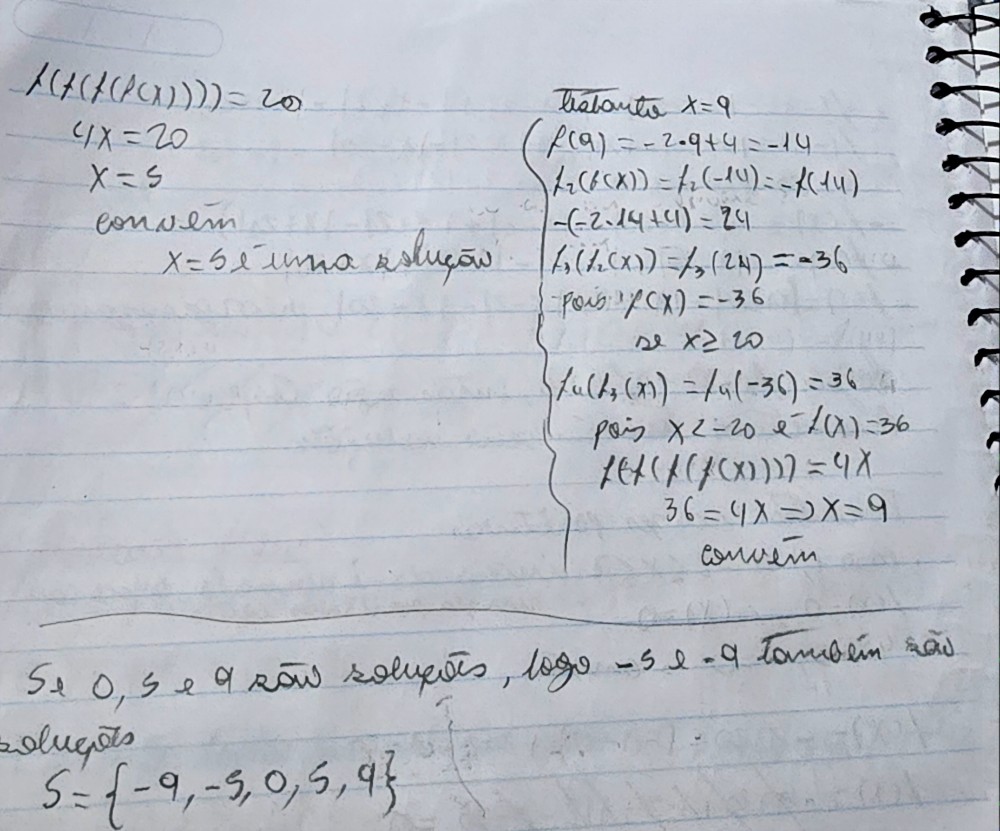 f(f(f(f(x)))) = 20
4x = 20
x = 5
convém
x = 5 é uma solução
testante x = 9
f(9) = -2•9+4 = -14
f₂(f(x)) = f₂(-14) = -f(14)
-(-2•14+4) = 24
f₃(f₂(x)) = f₃(24) = -36
pois f(x) = -36
se x ≥ 20
f₄(f₃(x)) = f₄(-36) = 36
pois x < -20 e f(x) = 36
f(f(f(f(x)))) = 4x
36 = 4x => x = 9
convém
Se 0, 5 e 9 são soluções, logo -5 e -9 também são
soluções
S = {-9, -5, 0, 5, 9}